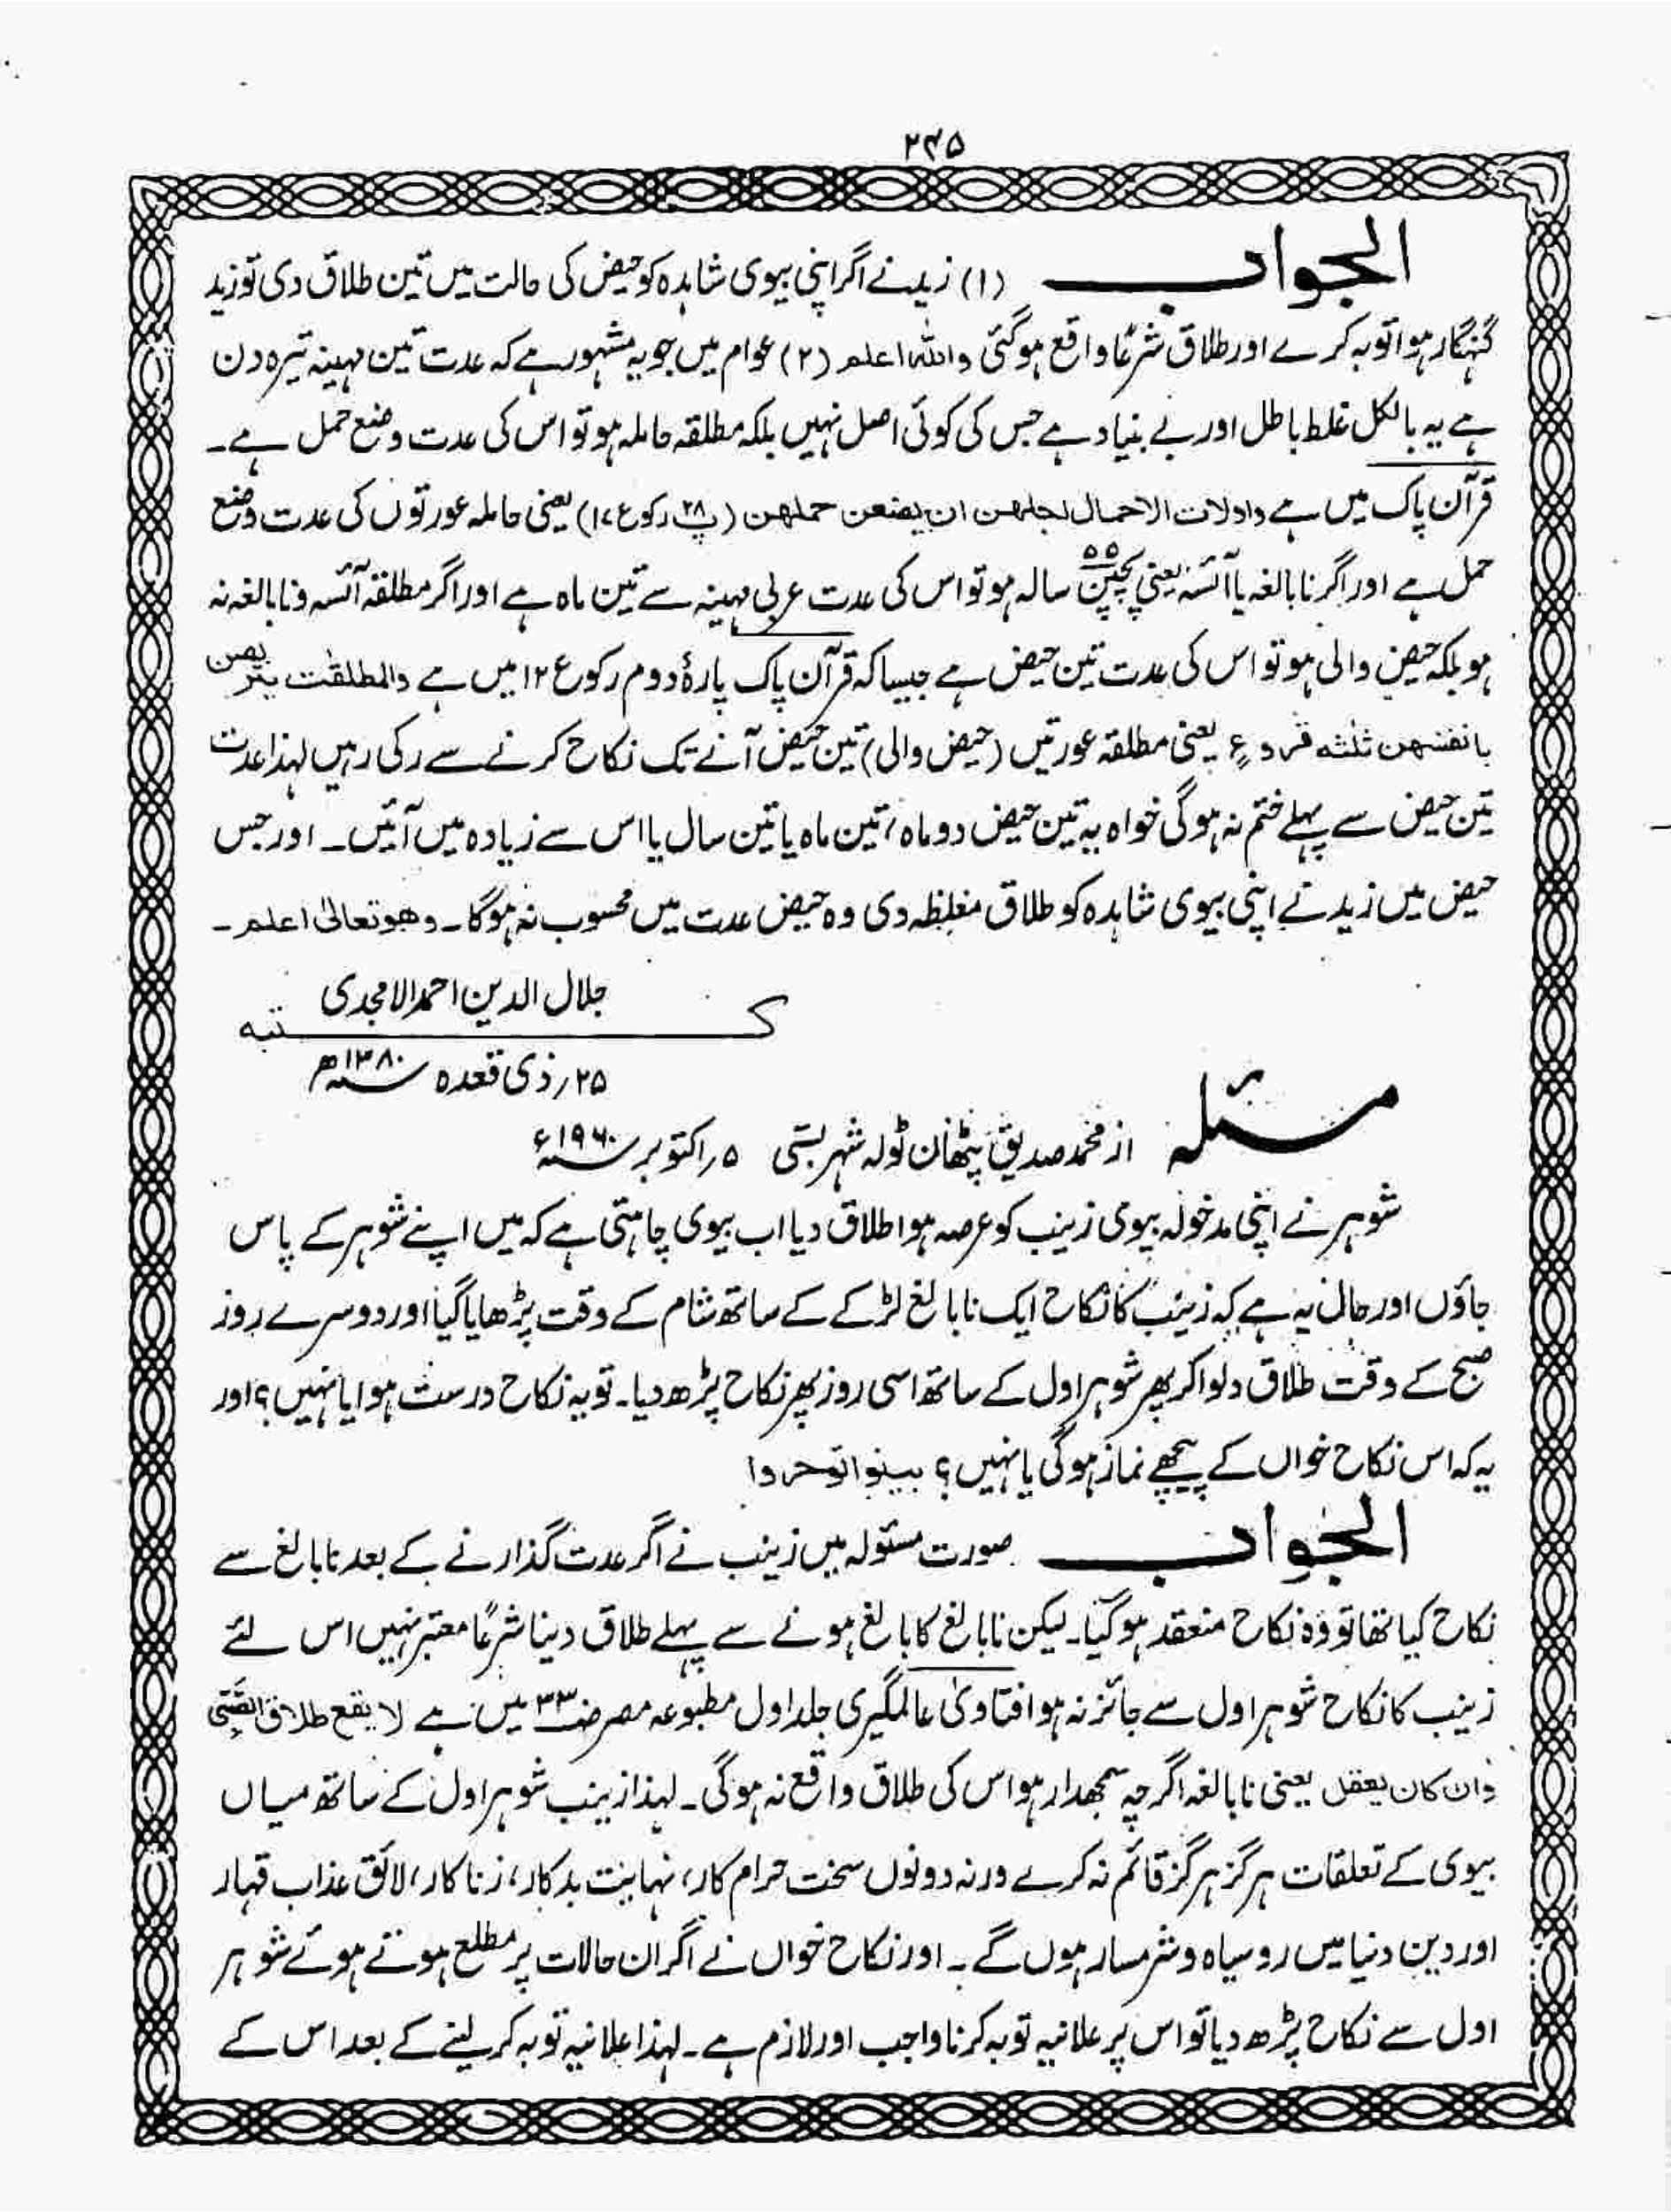 ۲۴۵
الجواب (۱) زید نے اگر اپنی بیوی شاہدہ کو حیض کی حالت میں تین طلاق دی تو زید
گنہگار ہوا توبہ کرے اور طلاق شرعًا واقع ہوگئی واللہ اعلم (۲) عوام میں جو یہ مشہور ہے کہ عدت تین مہینہ تیرہ دن
ہے یہ بالکل غلط باطل اور بے بنیاد ہے جس کی کوئی اصل نہیں بلکہ مطلقہ حاملہ ہو تو اس کی عدت وضع حمل ہے۔
قرآن پاک میں ہے واولات الاحمال اجلھن ان یضعن حملھن (پ۲۸ رکوع ۱۷) یعنی حاملہ عورتوں کی عدت وضع
حمل ہے اور اگر نابالغہ یا آئسہ یعنی پچپن ۵۵ سالہ ہو تو اس کی عدت عربی مہینہ سے تین ماہ ہے اور اگر مطلقہ آئسہ و نابالغہ نہ
ہو بلکہ حیض والی ہو تو اس کی عدت تین حیض ہے جیسا کہ قرآن پاک پارۂ دوم رکوع ۱۲ میں ہے والمطلقٰت یتربصن
بانفسھن ثلثہ قروءٍ یعنی مطلقہ عورتیں (حیض والی) تین حیض آنے تک نکاح کرنے سے رکی رہیں لہذا عدت
تین حیض سے پہلے ختم نہ ہوگی خواہ یہ تین حیض دو ماہ، تین ماہ یا تین سال یا اس سے زیادہ میں آئیں۔ اور جس
حیض میں زید نے اپنی بیوی شاہدہ کو طلاق مغلظہ دی وہ حیض عدت میں محسوب نہ ہوگا۔ وھو تعالیٰ اعلم۔
جلال الدین احمد الامجدی
کتبہ
۲۵؍ ذی قعدہ ۱۳۸۰ھ
مسئلہ از محمد صدیق پٹھان ٹولہ شہر بستی ۵؍ اکتوبر ۱۹۶۰ء
شوہر نے اپنی مدخولہ بیوی زینب کو عرصہ ہوا طلاق دیا اب بیوی چاہتی ہے کہ میں اپنے شوہر کے پاس
جاؤں اور حال یہ ہے کہ زینب کا نکاح ایک نابالغ لڑکے کے ساتھ شام کے وقت پڑھایا گیا اور دوسرے روز
صبح کے وقت طلاق دلوا کر پھر شوہر اول کے ساتھ اسی روز پھر نکاح پڑھ دیا۔ تو یہ نکاح درست ہوا یا نہیں؟ اور
یہ کہ اس نکاح خواں کے پیچھے نماز ہوگی یا نہیں؟ بینوا توجروا
الجواب صورت مسئولہ میں زینب نے اگر عدت گذارنے کے بعد نابالغ سے
نکاح کیا تھا تو وہ نکاح منعقد ہوگیا۔ لیکن نابالغ کا بالغ ہونے سے پہلے طلاق دینا شرعًا معتبر نہیں اس لئے
زینب کا نکاح شوہر اول سے جائز نہ ہوا فتاویٰ عالمگیری جلد اول مطبوعہ مصر میں ہے لا یقع طلاق الصبی
وان کان یعقل یعنی نابالغہ اگرچہ سمجھدار ہو اس کی طلاق واقع نہ ہوگی۔ لہذا زینب شوہر اول کے ساتھ میاں
بیوی کے تعلقات ہرگز ہرگز قائم نہ کرے ورنہ دونوں سخت حرام کار، نہایت بدکار، زناکار، لائق عذاب قہار
اور دین دنیا میں روسیاہ و شرمسار ہوں گے۔ اور نکاح خواں نے اگر ان حالات پر مطلع ہوتے ہوئے شوہر
اول سے نکاح پڑھ دیا تو اس پر علانیہ توبہ کرنا واجب اور لازم ہے۔ لہذا علانیہ توبہ کر لینے کے بعد اس کے